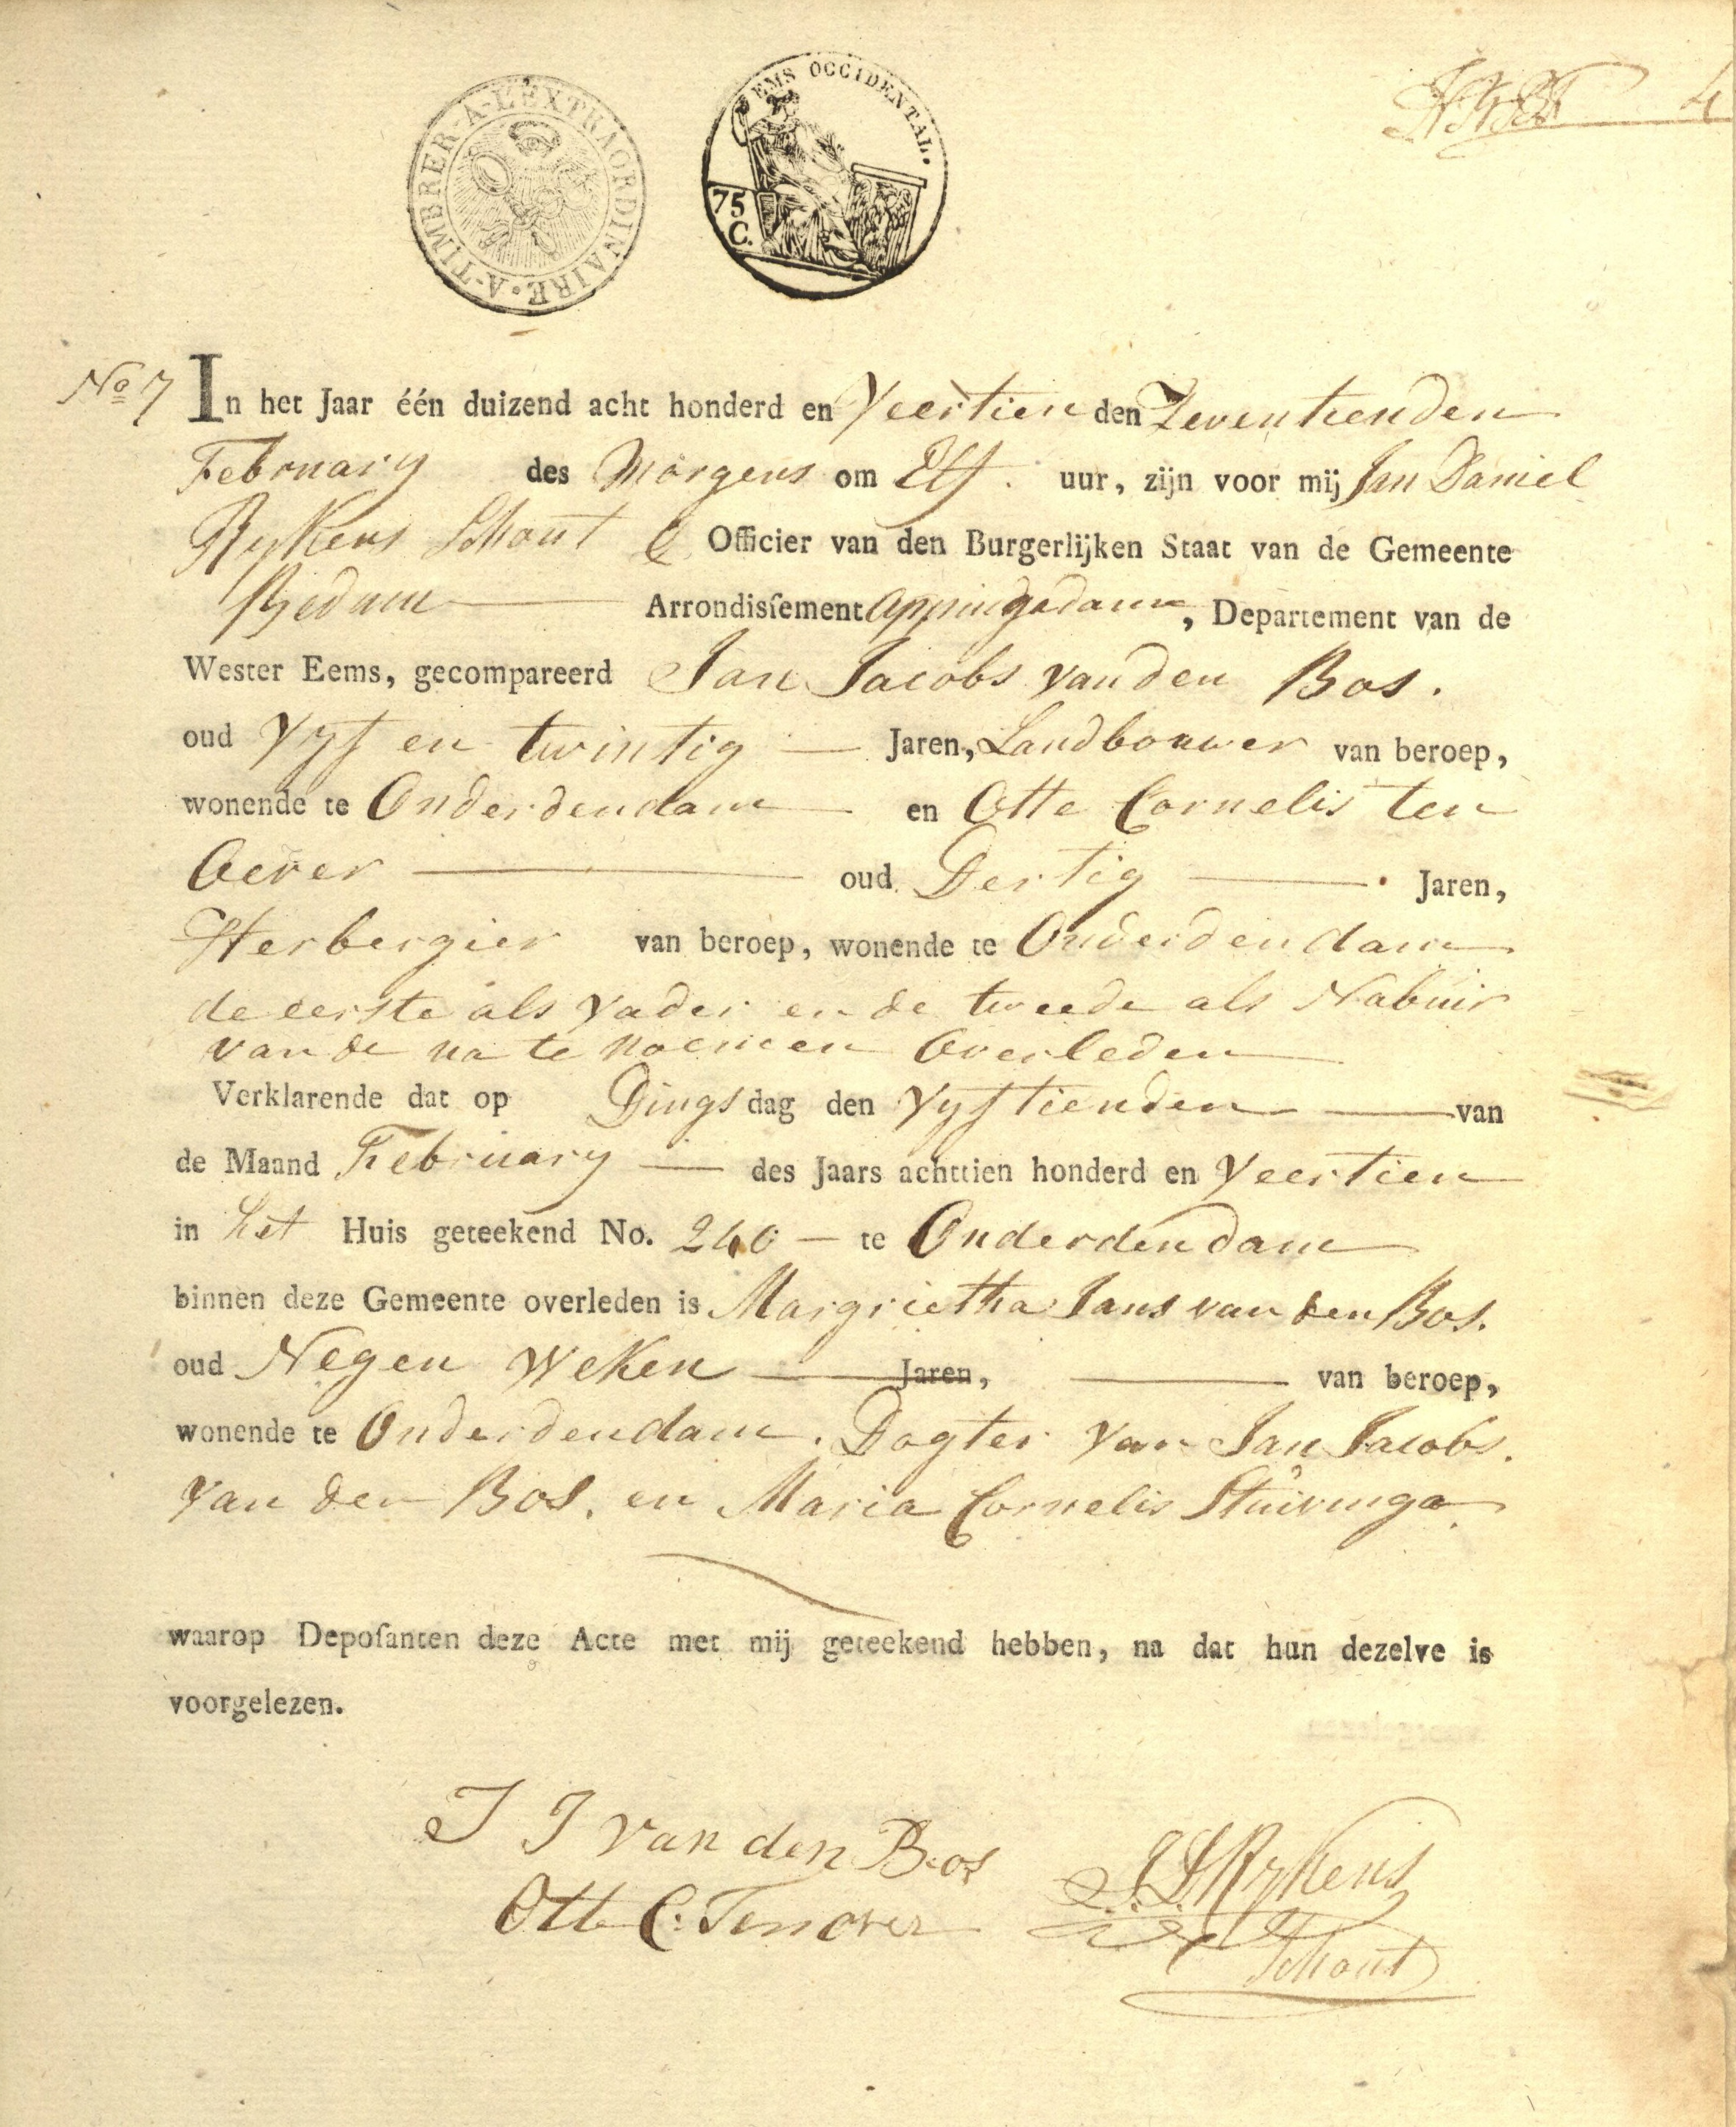 A·TIMBRER·A·L'EXTRAORDINAIRE·
EMS OCCIDENTAL.
75
C.
4
No 7 In het Jaar één duizend acht honderd en Veertien den Zeventienden
February des Morgens om Elf uur, zijn voor mij Jan Daniel
Rykens Schout & Officier van den Burgerlijken Staat van de Gemeente
Bedum Arrondisſement Appingadam, Departement van de
Wester Eems, gecompareerd Jan Jacobs van den Bos.
oud Vyf en twintig Jaren, Landbouwer van beroep,
wonende te Onderdendam en Otte Cornelis ten
Oever oud Dertig Jaren,
Herbergier van beroep, wonende te Onderdendam
de eerste als Vader en de tweede als Nabuir
van de na te noemen Overleden
Verklarende dat op Dingsdag den Vyftienden van
de Maand February des Jaars achttien honderd en Veertien
in het Huis geteekend No. 240 te Onderdendam
binnen deze Gemeente overleden is Margrietha Jans van den Bos.
oud Negen Weken Jaren, van beroep,
wonende te Onderdendam. Dogter van Jan Jacobs.
van den Bos. en Maria Cornelis Stuivinga
waarop Depoſanten deze Acte met mij geteekend hebben, na dat hun dezelve is
voorgelezen.
J J van den Bos
Otte C: Tenover
J. D. Rykens
Schout